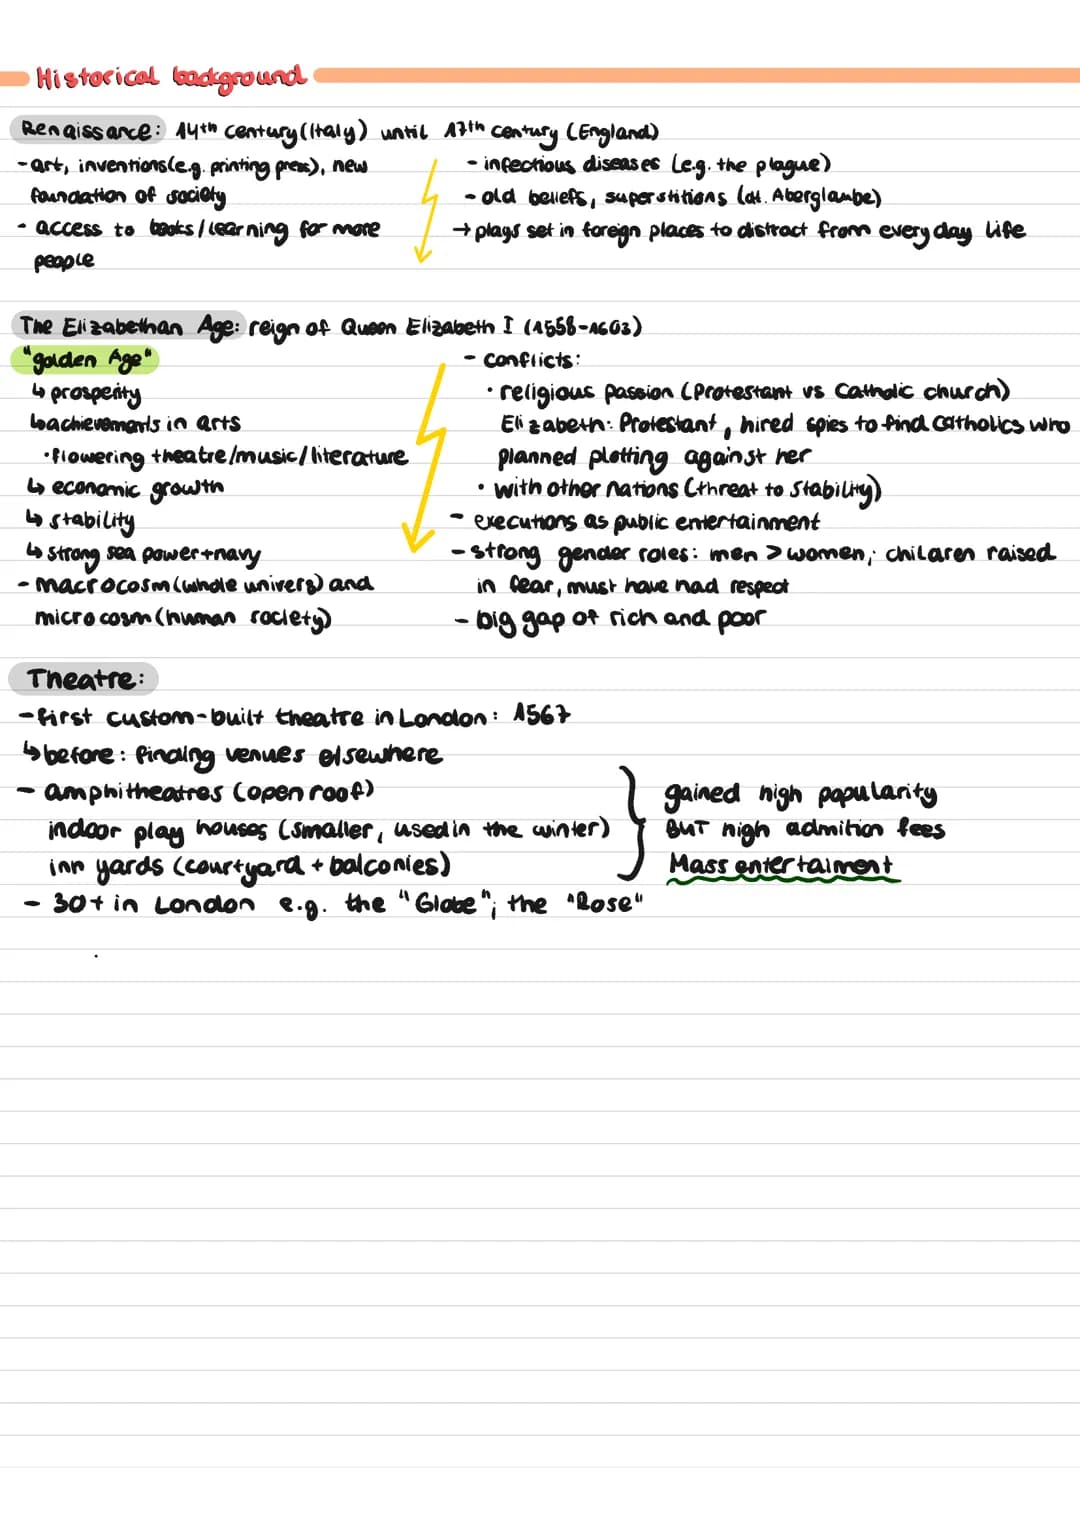 Historical background
Renaissance: 14th century (Italy) until 17th century (England)
- art, inventions (e.g. printing press), new
foundation of society
- access to books/learning for more
people
- infectious diseases (e.g. the plague)
- old beliefs, superstitions (dt. Aberglaube)
→ plays set in foreign places to distract from every day life
The Elizabethan Age: reign of Queen Elizabeth I (1558-1603)
"golden Age"
↳ prosperity
↳ achievements in arts
· flowering theatre/music/literature
↳ economic growth
↳ stability
↳ strong sea power+navy
- macrocosm (whole univers) and
microcosm (human society)
- conflicts:
· religious passion (Protestant vs Catholic church)
Elizabeth: Protestant, hired spies to find Catholics who
planned plotting against her
· with other nations (threat to stability)
- executions as public entertainment
- strong gender roles: men > women; children raised
in fear, must have had respect
- big gap of rich and poor
Theatre:
- first custom-built theatre in London: 1567
↳ before: finding venues elsewhere
- amphitheatres (open roof)
indoor play houses (smaller, used in the winter)
inn yards (courtyard + balconies)
gained high popularity
BUT high admition fees
Mass entertaiment
- 30+ in London e.g. the "Globe"; the "Rose"